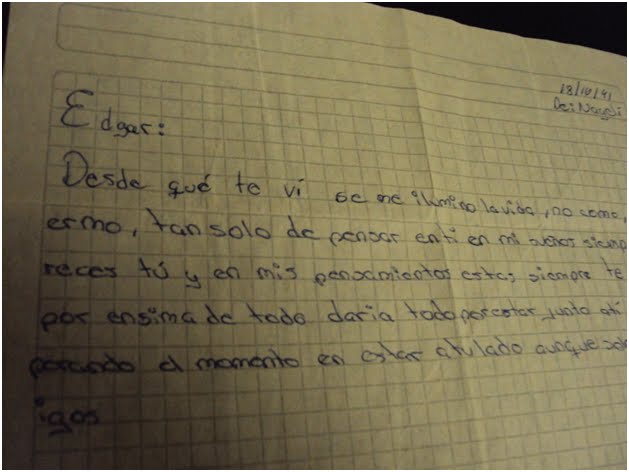 18/10/91
De: Nayeli
Edgar:
Desde qué te ví se me ilumino la vida, no como,
ermo, tan solo de pensar en ti en mi sueños siemp
reces tú y en mis pensamientos estas siempre te
por ensima de todo daria todo por estar junto ati
perando el momento en estar atulado aunque sol
igos